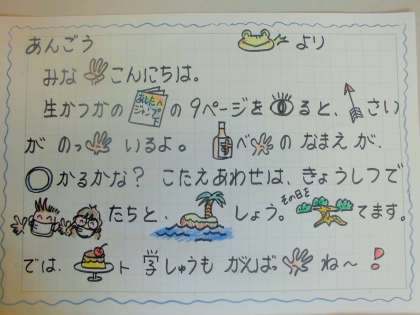 あんごう より
みな こんにちは。
生かつかの あしたへジャンプ の 9ページを ると、 さい
が のっ いるよ。 べ の なまえ が、
かるかな? こたえあわせは、きょうしつで
たちと、 しょう。その日を てます。
では、 ト 学しゅうも がんばっ ね~!